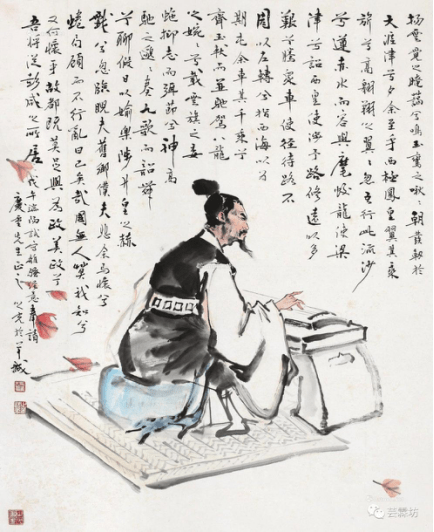 揚雲霓之晻藹兮鳴玉鸞之啾々朝發軔於
天涯津兮夕余至乎西極鳳皇翼其承
旂兮高翱翔之翼々忽吾行此流沙
兮遵赤水而容與麾蛟龍使梁
津兮詔西皇使涉予路修遠以多
艱兮騰衆車使徑待路不
周以左轉兮指西海以為
期屯余車其千乘兮
齊玉軑而並馳駕八龍
之婉々兮載雲旗之委
蛇抑志而弭節兮神高
馳之邈々奏九歌而韶舞
兮聊假日以媮樂陟升皇之赫
戲兮忽臨睨夫舊鄉僕夫悲余馬懷兮
蜷局顧而不行亂曰已矣哉國無人莫我知兮
又何懷乎故都既莫足與為政美政兮
吾將從彭咸之所居